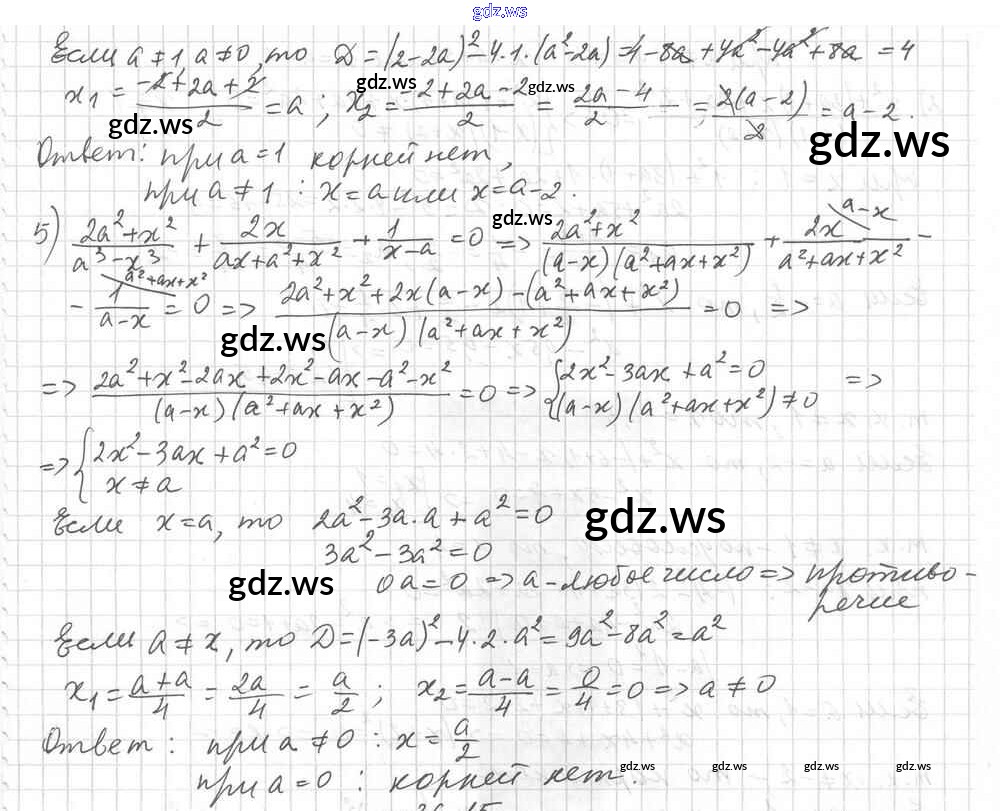 gdz.ws
Если a ≠ 1, a ≠ 0, то D = (2-2a)² - 4·1·(a²-2a) = 4-8a+4a²-4a²+8a = 4
x₁ = (-2+2a+2)/2 = a ; x₂ = (-2+2a-2)/2 = (2a-4)/2 = 2(a-2)/2 = a-2.
gdz.ws gdz.ws gdz.ws
Ответ: при a=1 корней нет,
при a ≠ 1 : x=a или x=a-2.
gdz.ws
5) (2a²+x²)/(a³-x³) + 2x/(ax+a²+x²) + 1/(x-a) = 0 => (2a²+x²)/((a-x)(a²+ax+x²)) + 2x/(a²+ax+x²) \a-x -
- 1/(a-x) \a²+ax+x² = 0 => (2a²+x²+2x(a-x)-(a²+ax+x²))/((a-x)(a²+ax+x²)) = 0 =>
gdz.ws gdz.ws
=> (2a²+x²-2ax+2x²-ax-a²-x²)/((a-x)(a²+ax+x²)) = 0 => {2x²-3ax+a²=0 (a-x)(a²+ax+x²) ≠ 0 =>
=> {2x²-3ax+a²=0
x ≠ a
Если x=a, то 2a²-3a·a+a²=0
gdz.ws
3a²-3a²=0
gdz.ws
0a=0 => a-любое число => противо-
речие
Если a ≠ x, то D=(-3a)²-4·2·a²=9a²-8a²=a²
x₁ = (a+a)/4 = 2a/4 = a/2 ; x₂ = (a-a)/4 = 0/4 = 0 => a ≠ 0
Ответ: при a ≠ 0 : x = a/2
при a=0 : корней нет.
gdz.ws gdz.ws gdz.ws